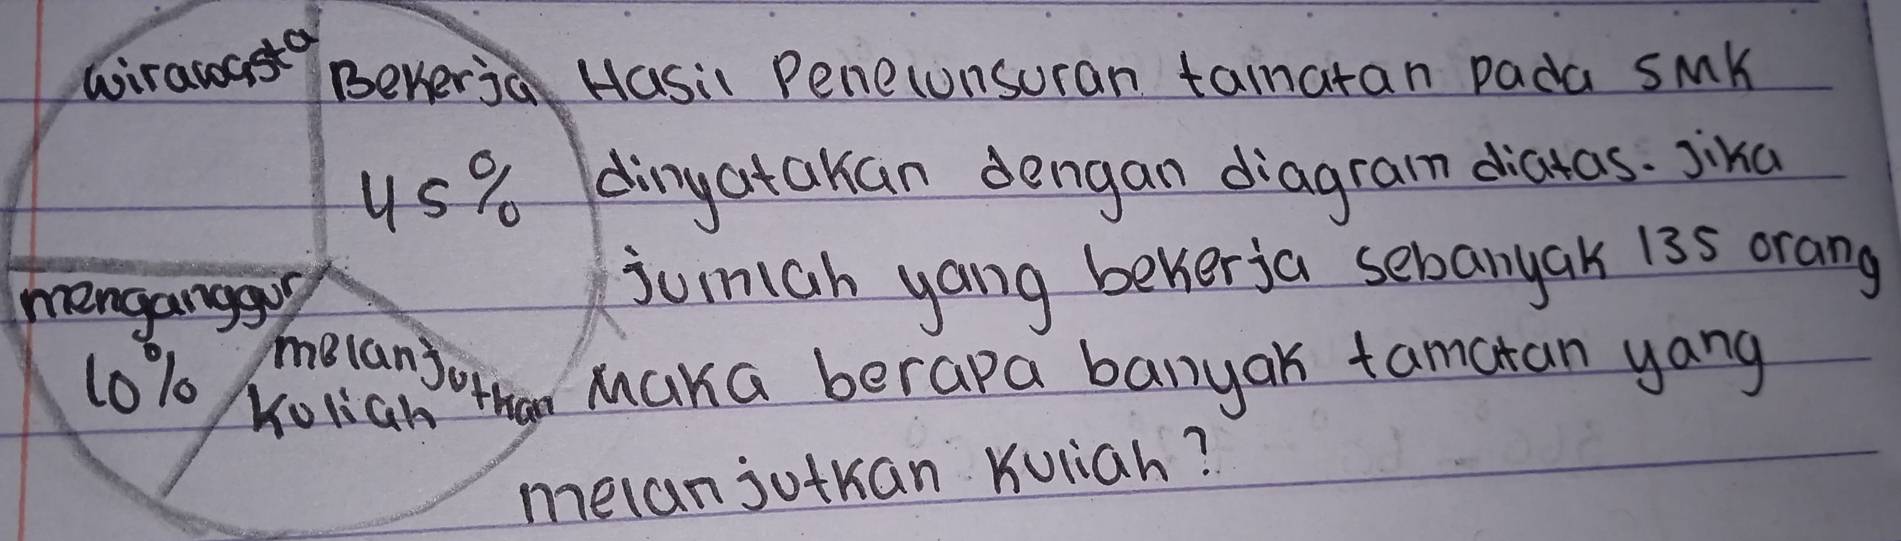 wirawasta
Bekerja
45%
menganggur
10%
melanjutkan
kuliah
Hasil Penelunsuran tamatan pada SMK
dinyatakan dengan diagram diatas. Jika
jumlah yang bekerja sebanyak 135 orang
Maka berapa banyak tamatan yang
melanjutkan kuliah?